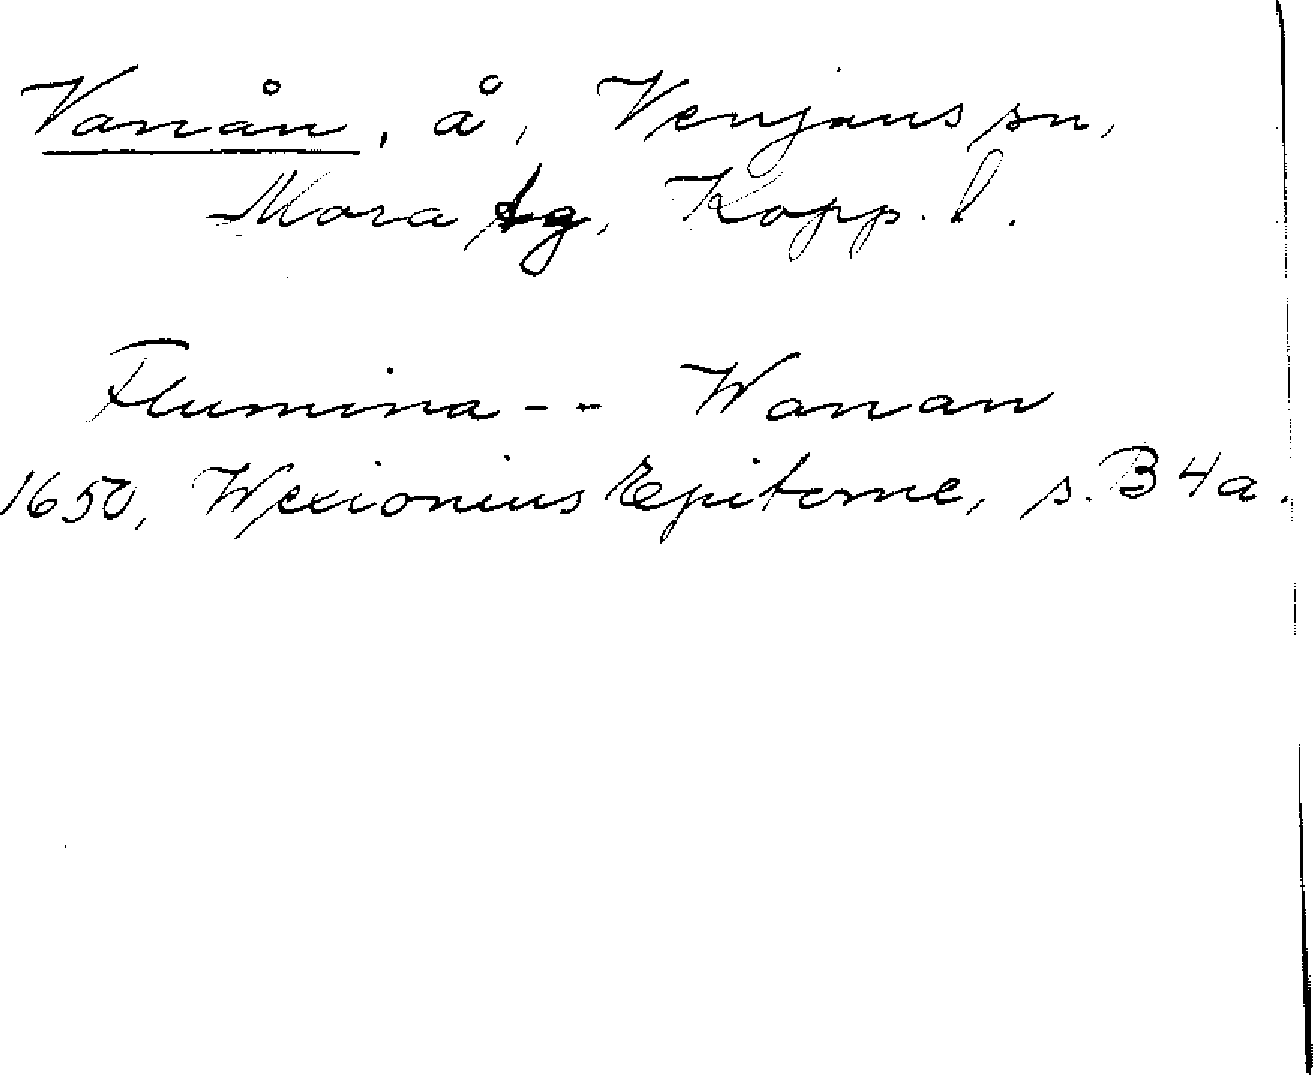 Vanån, å, Venjans sn,
Mora tg, Kopp. l.
Flumina -- Wanan
1650, Wexionius Epitome, s. B 4a.